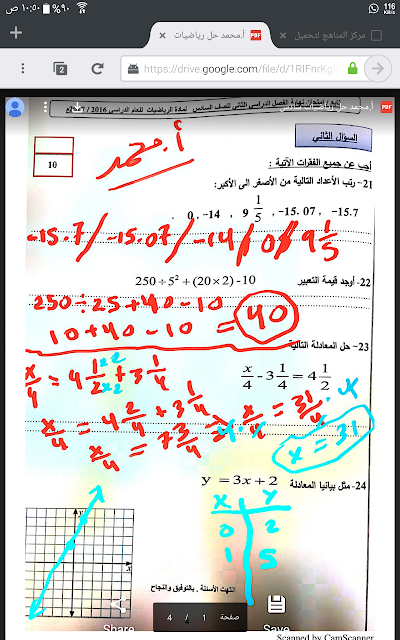 ١٠:٥٠ ص
٩٠%
116
KB/s
أ.محمد حل رياضيات
مركز المناهج لتحميل
https://drive.google.com/file/d/1RIFnrKg
امتحان نهاية الفصل الدراسي الثاني للصف السادس لمادة الرياضيات للعام الدراسي 2016 / 2017
PDF
السؤال الثاني
10
أ. محمد
أجب عن جميع الفقرات الآتية :
21- رتب الأعداد التالية من الأصغر الى الأكبر:
0 , -14 , 9 1/5 , -15.07 , -15.7
-15.7 / -15.07 / -14 / 0 / 9 1/5
22- أوجد قيمة التعبير 250 ÷ 5² + (20 × 2) - 10
250 ÷ 25 + 40 - 10
10 + 40 - 10 = 40
23- حل المعادلة التالية
x/4 - 3 1/4 = 4 1/2
x/4 = 4 1×2/2×2 + 3 1/4
x/4 = 4 2/4 + 3 1/4
x/4 = 7 3/4
4 · x/4 = 31/4 · 4
x = 31
24- مثل بيانيا المعادلة y = 3x + 2
x y
0 2
1 5
y
x
انتهت الأسئلة , بالتوفيق والنجاح
Share
صفحة 1 / 4
Save
Scanned by CamScanner